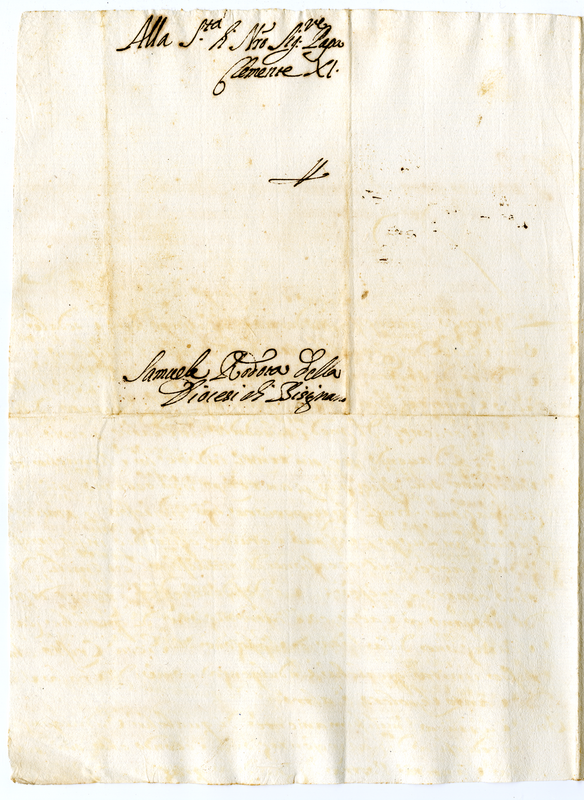 Alla S.tà di Nro Sig.re Papa
Clemente XI.
Samuele Rodotà della
Diocesi di Bisignano